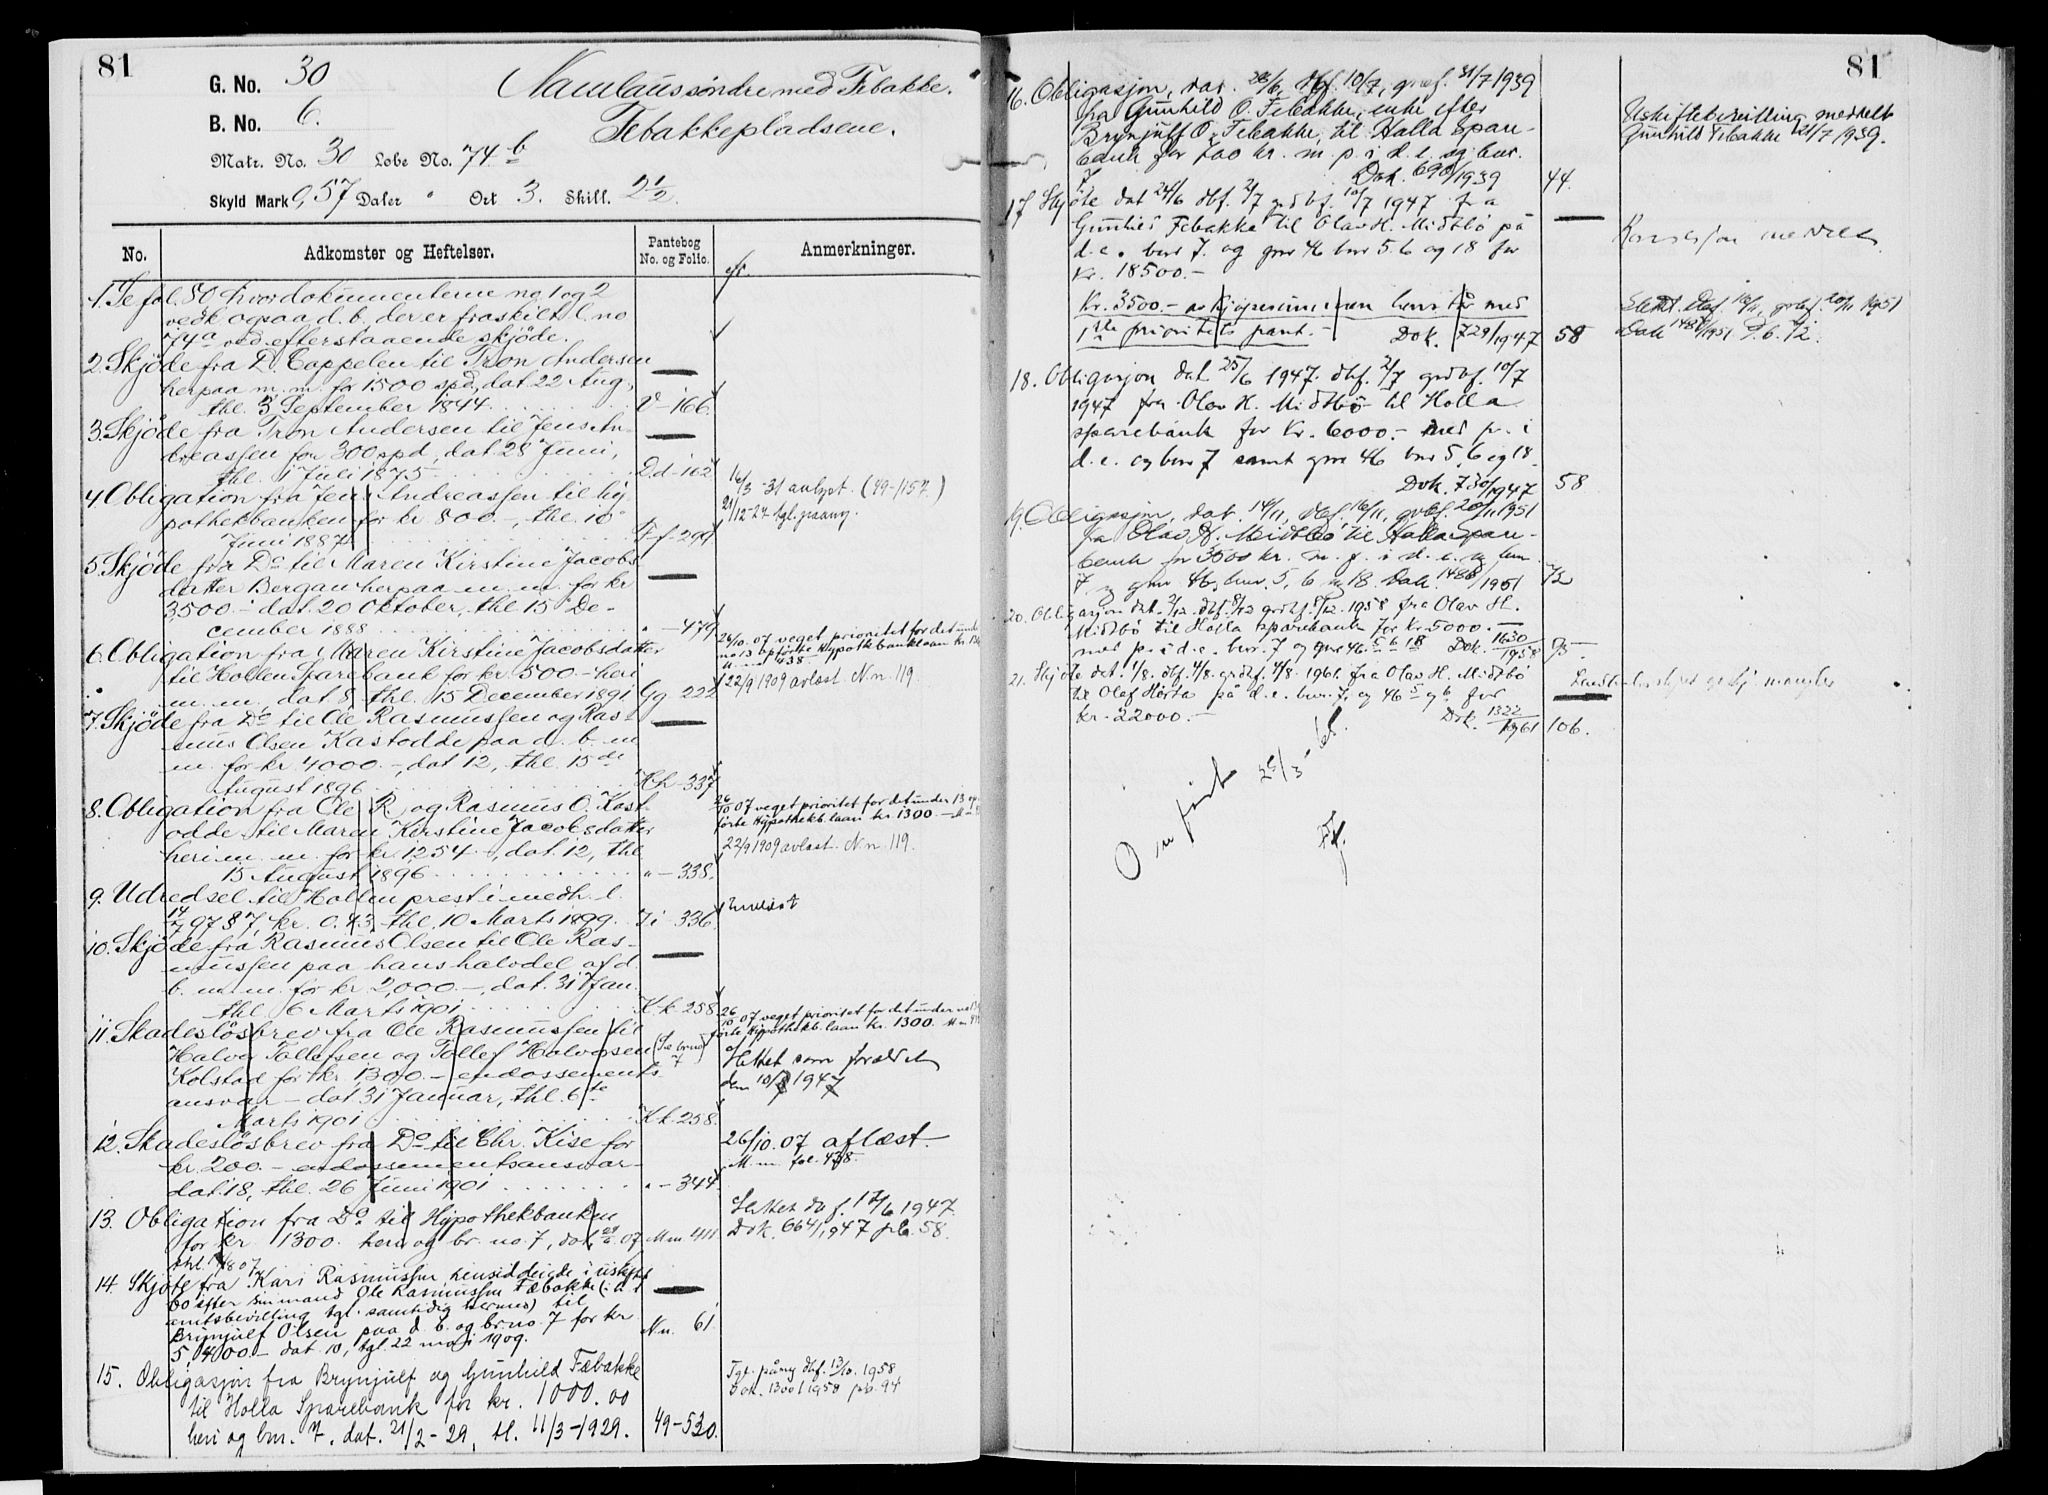 81
G. No. 30
Namlaus søndre med Febakke.
B. No. 6.
Febakkepladsene.
Matr. No. 30 Løbe No. 74 b
Skyld Mark 0,57 Daler " Ort 3. Skill. 2 1/2.
No.
Adkomster og Heftelser.
Pantebog No. og Folio.
Anmerkninger.
1. Se fol. 80 hvor dokumenterne no 1 og 2
vedk. ogsaa d. b. der er fraskilt l. no
74a ved efterstaaende skjöde.
2. Skjöde fra D. Cappelen til Tron Andersen
herpaa m. m. for 1500 spd, dat. 22 Aug.,
thl. 3 September 1844. V - 166.
3. Skjöde fra Tron Andersen til Jens An-
dreassen for 300 spd, dat 28 Juni,
thl. 1 Juli 1875 Dd - 162
4. Obligation fra Jens Andreassen til hy-
pothekbanken for kr 800.-, thl. 10
Juni 1887 Ff 299
16/3 - 31 avlyst. (49-1157.)
21/12-27 tgl. paany.
5. Skjöde fra Do til Maren Kirstine Jacobs-
datter Bergan herpaa m. m. for kr
3,500.- dat. 20 Oktober, thl. 15 De-
cember 1888 " - 479
6. Obligation fra Maren Kirstine Jacobsdatter
til Hollen Sparebank for kr. 500.- heri
m. m., dat 8, thl. 15 December 1891 Gg 222
26/10.07 veget prioritet for det under
no 13 opførte Hypothekbanklaan kr. 1300
M. m. 438
22/9 1909 avlæst N.n. 119.
7. Skjöde fra Do til Ole Rasmussen og Ras-
mus Olsen Kastodde paa d. b. m.
m. for kr. 4000.-, dat 12, thl. 15de
August 1896 Hh - 337
8. Obligation fra Ole R. og Rasmus O. Kast-
odde til Maren Kirstine Jacobsdatter
heri m. m. for kr. 1,254.-, dat. 12, thl.
15 August 1896 " - 338.
26/10 07 veget prioritet for det under 13 op-
førte Hypothekb. laan kr. 1300 -
22/9 1909 avlæst N.n. 119.
9. Udredsel til Hollen prest i medh. l.
14/7 97 § 7, kr. 0.43, thl. 10 Marts 1899. Ii - 336
10. Skjöde fra Rasmus Olsen til Ole Ras-
mussen paa hans halvdel af d.
b. m. m. for kr 2,000.-, dat. 31 Jan.
thl. 6 Marts 1901 Kk 258
11. Skadeslösbrev fra Ole Rasmussen til
Halvor Tollefsen og Tollef Halvorsen
Kolstad for kr 1300.- endossements-
ansvar - dat 31 Januar, thl. 6te
Marts 1901 Kk 258.
(Se brno 7
26/10 07 veget prioritet for det under no 13
førte Hypothekb. laan kr. 1300.
Slettet som forældet
den 10/7 1947
12. Skadeslösbrev fra Do til Chr. Kise for
kr. 200.- endossementsansvar -
dat. 18, thl. 26 Juni 1901 " - 344
26/10.07 aflæst.
M. m. fol. 438.
13. Obligation fra Do til Hypothekbanken
for kr 1300. heri og br. no. 7, dat. 07, M m 411
Slettet dbf. 17/6 1947.
Dok. 664/1947 pb. 58.
14. Skjöte fra Kari Rasmussen, hensiddende i uskiftet
bo efter sin mand Ole Rasmussen Febakke (
amtsbevilling tgl. samtidig hermed) til
Brynjulf Olsen paa d. b. og br. no. 7 for kr
5,400.- dat 10, tgl. 22 mai 1909. N n. 61
15. Obligasjon fra Brynjulf og Gunhild Febakke
til Holla Sparebank for kr. 1000.00
heri og bnr. 7, dat. 21/2 - 29, tl. 11/3-1929. 49-530.
Tgl. påny dbf. 13/10. 1958
Dok. 1300/1958 pb. 94
81
16. Obligasjon, dat. 28/6, dbf. 10/7, grbf. 31/7 1939
fra Gunhild O. Febakke, enke efter
Brynjulf O. Febakke, til Holla Spare-
bank for 700 kr. m. p. i d. e. og bnr.
7 Dok. 690/1939 44.
Uskiftebevilling meddelt
Gunhild Febakke 21/7 1939.
17 Skjøte dat 24/6 dbf. 2/7 grdbf. 10/7 1947 fra
Gunhild Febakke til Olav H. Midtbö på
d. e. bnr 7. og gnr 46 bnr 5. 6 og 18 for
kr. 18500.-
Konsesjon meddelt
Kr. 3500.- av kjøpesummen henstår med
1ste prioritets pant.- Dok. 729/1947 58
Slettet. Dbf. 16/11, grbf. 20/11 1951
Dok 1487/1951 P. b. 72.
18. Obligasjon dat 25/6 1947. dbf. 2/7 grdbf. 10/7
1947 fra Olav H. Midtbö til Holla
sparebank for kr. 6000.- med p. i
d. e. og bnr 7 samt gnr 46 bnr 5, 6 og 18.
Dok. 730/1947 58
19. Obligasjon, dat. 14/11, dbf. 16/11, grbf. 20/11 1951
fra Olav H. Midtbö til Holla Spare-
bank for 3500 kr. m. p. i d. e. og bnr.
7 og gnr 46, bnr. 5, 6 og 18. Dok. 1488/1951 72
20. Obligasjon dat. 2/12. dbf. 8/12 grdbf. 8/12. 1958 fra Olav H.
Midtbö til Holla sparebank for kr. 5000.-
med p. i d. e. bnr. 7 og gnr. 46. 5. 6. 18 Dok. 1630/1958 95
21. Skjöte dat. 1/8. dbf. 4/8. grdbf. 4/8. 1961. fra Olav H. Midtbö
til Olaf Hörta på d. e. bnr. 7, og 46 5 og 6 for
kr. 22000.- Dok. 1322/1961 106.